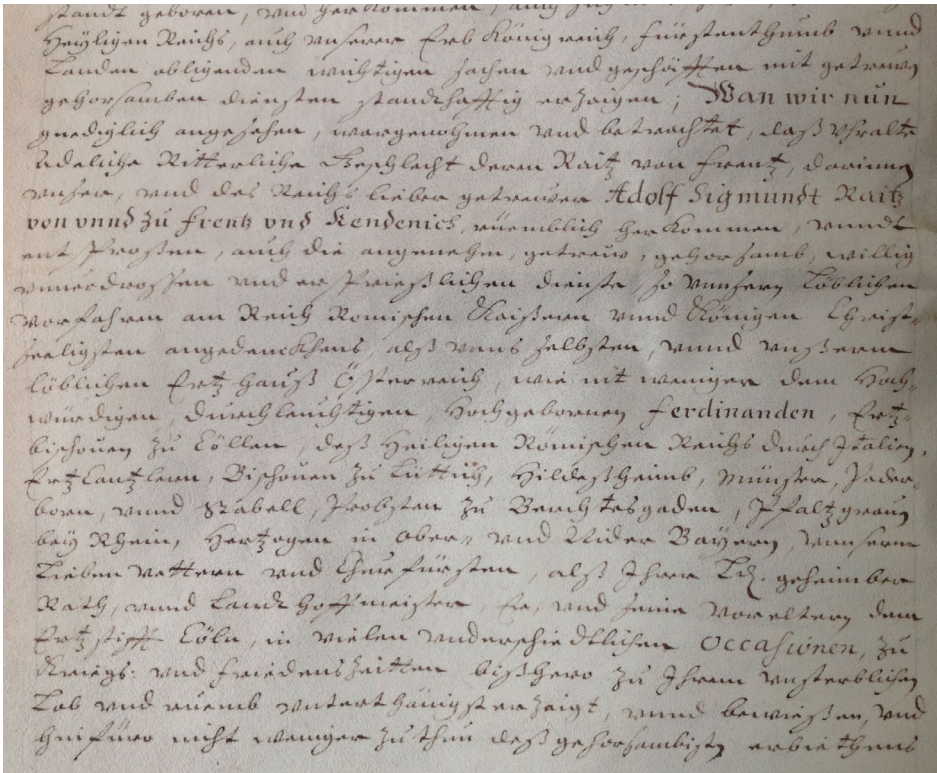 standt geboren, vnd herkommen, auch
Heyligen Reichs, auch vnserer Erb Königreich, Fürstenthumb vnnd
Landen obligenden wichtigen sachen vnd geschäfften mit getrewen
gehorsamben diensten standthafftig erzaigen; Wan wir nun
gnediglich angesehen, wargenohmen vnd betrachtet, daß Vhralte
Adeliche Ritterliche Geschlecht deren Raitz von Frentz, darinnen
vnser, vnd des Reichs lieber getrewer Adolf Sigmundt Raitz
von vnnd zu Frentz vnd Kendenich, rüemblich herkommen, vnndt
ent Proßen, auch die angenehm, getrew, gehorsamb, willig
vnuerdroßen vnd er Prießlichen dienste, so vnnsern Löblichen
Vorfahren am Reich Römischen Kaißern vnnd Königen Christ„
seeligsten angedenckhens, alß vnns selbsten, vnnd vnßerm
löblichen Ertzhauß Össterreich, wie nit weniger dem Hoch„
würdigen, Durchleuchtigen, Hochgebornen Ferdinanden, Ertz„
bischouen zu Cöllen, deß Heiligen Römischen Reichs durch Italien,
ErtzCantzlern, Bischouen zu Lüttich, Hildeßheimb, Münster, Pader„
born, vnnd Stabell, Probsten zu Berchtesgaden, Pfaltzgrauen
bey Rhein, Hertzogen in ober„ vnd Nider Bayern, vnnserm
Lieben vettern vnd Churfürsten, alß Ihrer Ld. geheimber
Rath, vnnd Landthoffmeister, Er, vnd seine Voreltern dem
Ertzstifft Cöln, in vielen vnderschiedtlichen Occasionen, zu
Kriegs: vnd friedenszeitten bißhero zu Ihrem vnsterblichen
Lob vnd ruemb vnterthänigst erzaigt, vnnd bewießen, vnd
hinfüro nicht weniger zu thun deß gehorsambisten erbiethens